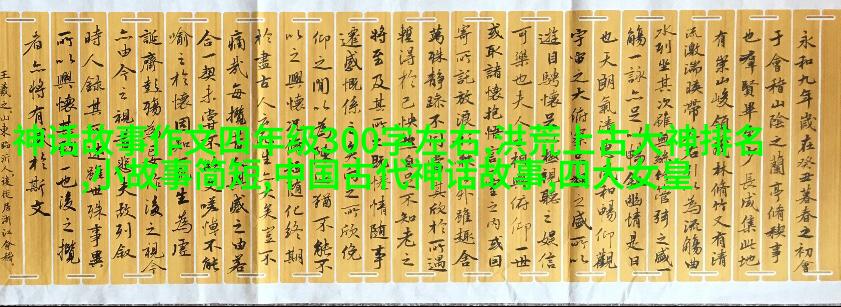 神话故事作文四年级300字左右,洪荒上古大神排名
小故事简短,中国古代神话故事,四大女皇
永和九年歲在癸丑暮春之初會
于會稽山陰之蘭亭脩稧事
也羣賢畢至少長咸集此地
有崇山峻領茂林脩竹又有清
流激湍暎帶左右引以為流觴曲
水列坐其次雖無絲竹管弦之盛一
觴一詠亦足以暢敘幽情是日
也天朗氣清惠風和暢仰觀
宇宙之大俯察品類之盛所以
遊目騁懷足以極視聽之娛信
可樂也夫人之相與俯仰一世
或取諸懷抱悟言一室之內或因
寄所託放浪形骸之外雖趣舍
萬殊靜躁不同當其欣於所遇
暫得於己快然自足不知老之
將至及其所之既惓情隨事
遷感慨係之矣向之所欣俛
仰之間以為陳迹猶不能不
以之興懷況脩短隨化終期
於盡古人云死生亦大矣豈不
痛哉每攬昔人興感之由若
合一契未嘗不臨文嗟悼不能
喻之於懷固知一死生為虛
誕齊彭殤為妄作後之視今
亦由今之視昔悲夫故列敘
時人錄其所述雖世殊事異
所以興懷其致一也後之攬
者亦將有感於斯文